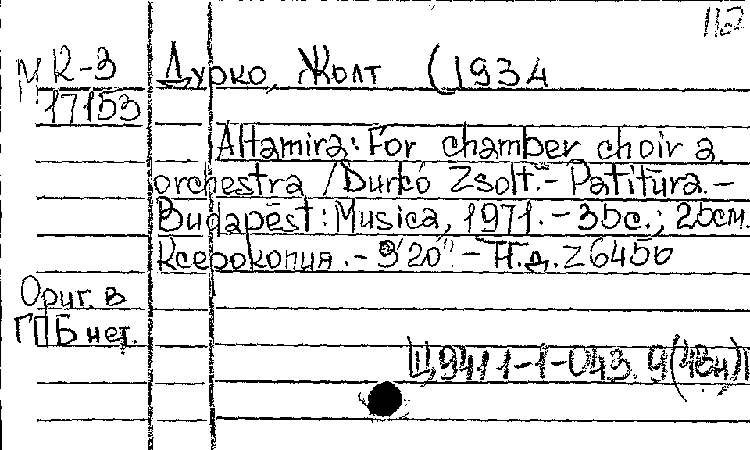 112
М К-3 Дурко, Жолт (1934
17153
Altamira: For chamber choir a
orchestra / Durkó Zsolt.- Patitura.-
Budapest: Musica, 1971.-35с.; 25см.
Ксерокопия.-9'20"-Н.д. Z6456
Ориг. в
ГПБ нет.
Ц9411-1-043. 9(48н)